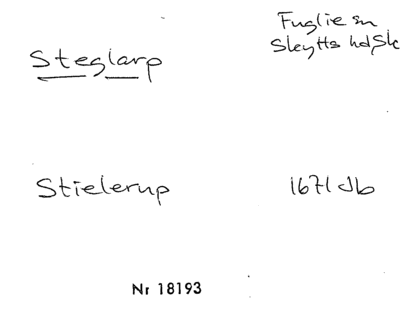 Steglarp
Fuglie sn
Skytts hd, Sk
Stielerup
1671 Jb
Nr 18193